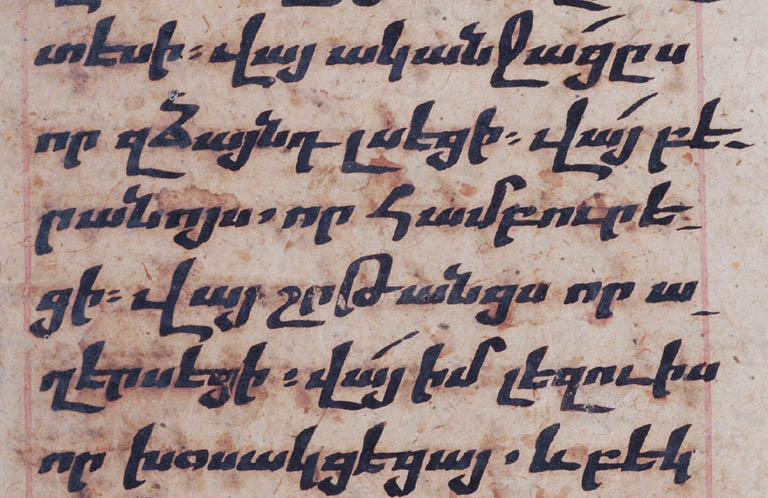 տէսի։ վայ ականջա՛ցըս
որ զձայնդ լսէցի։ վա՛յ բէ-
րանոյս, որ համբուրէ-
ցի։ վայ շըթանցս որ ա-
ղէրսէցի։ վա՛յ իմ լէզուիս
որ խօսակցէցայ, և բէկ